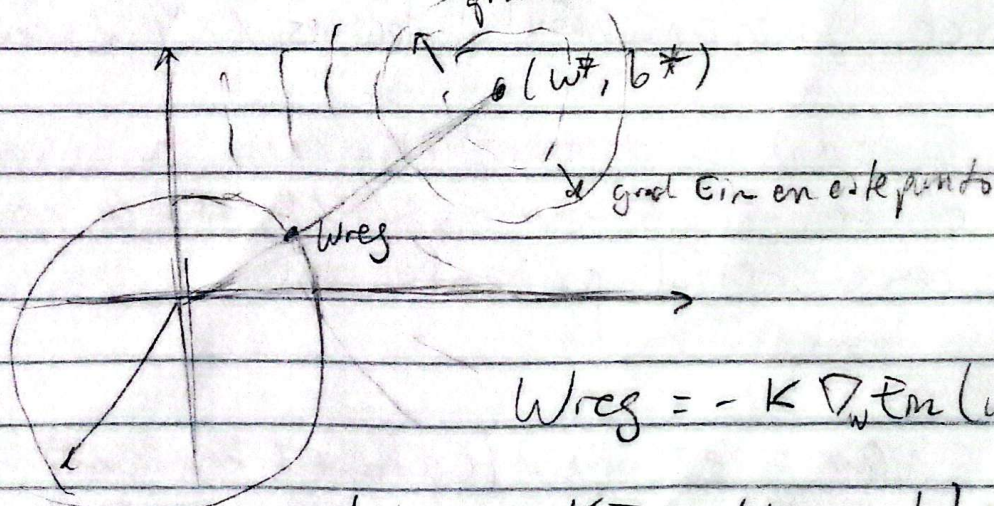 (w*, b*)
grad Ein en este punto
Wreg
Wreg = - K ∇w Ein (